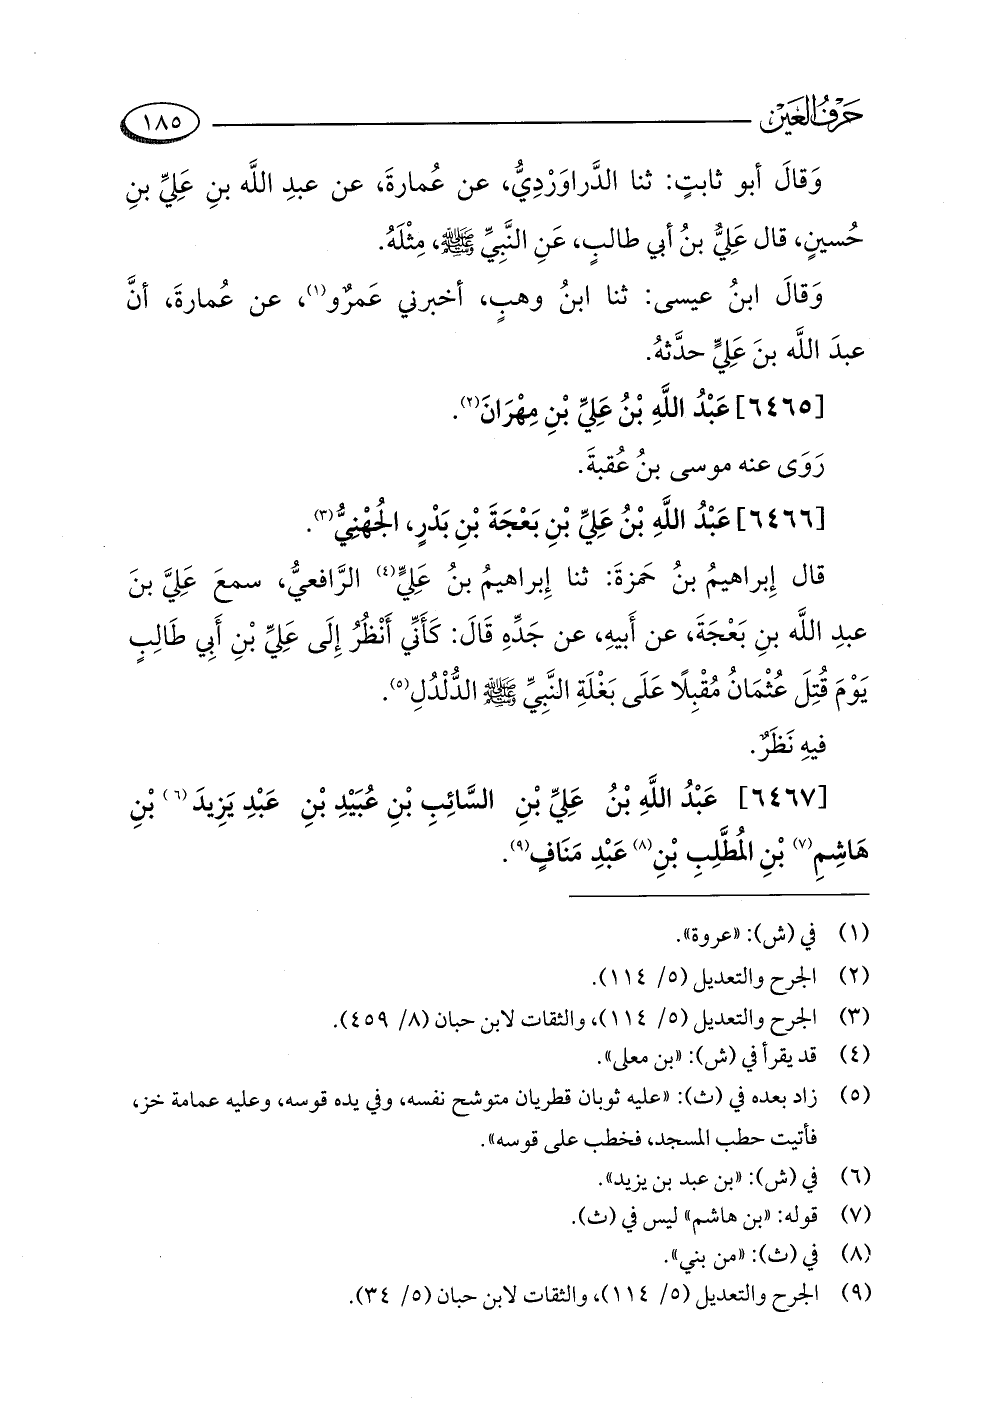 حَرْفُ العَيْن ١٨٥
وَقالَ أبو ثابتٍ: ثنا الدَّراوَرْدِيُّ، عن عُمارةَ، عن عبدِ الله بنِ عَلِيِّ بنِ
حُسينٍ، قال عَلِيُّ بنُ أبي طالبٍ، عَنِ النَّبِيِّ ﷺ، مِثْلَهُ.
وَقالَ ابنُ عيسى: ثنا ابنُ وهبٍ، أخبرني عَمرٌو(١)، عن عُمارةَ، أنَّ
عبدَ الله بنَ عَلِيٍّ حدَّثهُ.
[٦٤٦٥] عَبْدُ اللَّهِ بْنُ عَلِيِّ بْنِ مِهْرَانَ(٢).
رَوَى عنه موسى بنُ عُقبةَ.
[٦٤٦٦] عَبْدُ اللَّهِ بْنُ عَلِيِّ بْنِ بَعْجَةَ بْنِ بَدْرٍ، الجُهْنِيُّ(٣).
قال إبراهيمُ بنُ حَمزةَ: ثنا إبراهيمُ بنُ عَلِيٍّ(٤) الرَّافعيُّ، سمعَ عَلِيَّ بنَ
عبدِ الله بنِ بَعْجَةَ، عن أبيهِ، عن جَدِّهِ قَالَ: كَأَنِّي أَنْظُرُ إِلَى عَلِيِّ بْنِ أَبِي طَالِبٍ
يَوْمَ قُتِلَ عُثْمَانُ مُقْبِلًا عَلَى بَغْلَةِ النَّبِيِّ ﷺ الدُّلْدُلِ(٥).
فيهِ نَظَرٌ.
[٦٤٦٧] عَبْدُ اللَّهِ بْنُ عَلِيِّ بْنِ السَّائِبِ بْنِ عُبَيْدِ بْنِ عَبْدِ يَزِيدَ(٦) بْنِ
هَاشِمِ(٧) بْنِ المُطَّلِبِ بْنِ(٨) عَبْدِ مَنَافٍ(٩).
(١) في (ش): «عروة».
(٢) الجرح والتعديل (٥/ ١١٤).
(٣) الجرح والتعديل (٥/ ١١٤)، والثقات لابن حبان (٨/ ٤٥٩).
(٤) قد يقرأ في (ش): «بن معلى».
(٥) زاد بعده في (ث): «عليه ثوبان قطريان متوشح نفسه، وفي يده قوسه، وعليه عمامة خز،
فأتيت حطب المسجد، فخطب على قوسه».
(٦) في (ش): «بن عبد بن يزيد».
(٧) قوله: «بن هاشم» ليس في (ث).
(٨) في (ث): «من بني».
(٩) الجرح والتعديل (٥/ ١١٤)، والثقات لابن حبان (٥/ ٣٤).